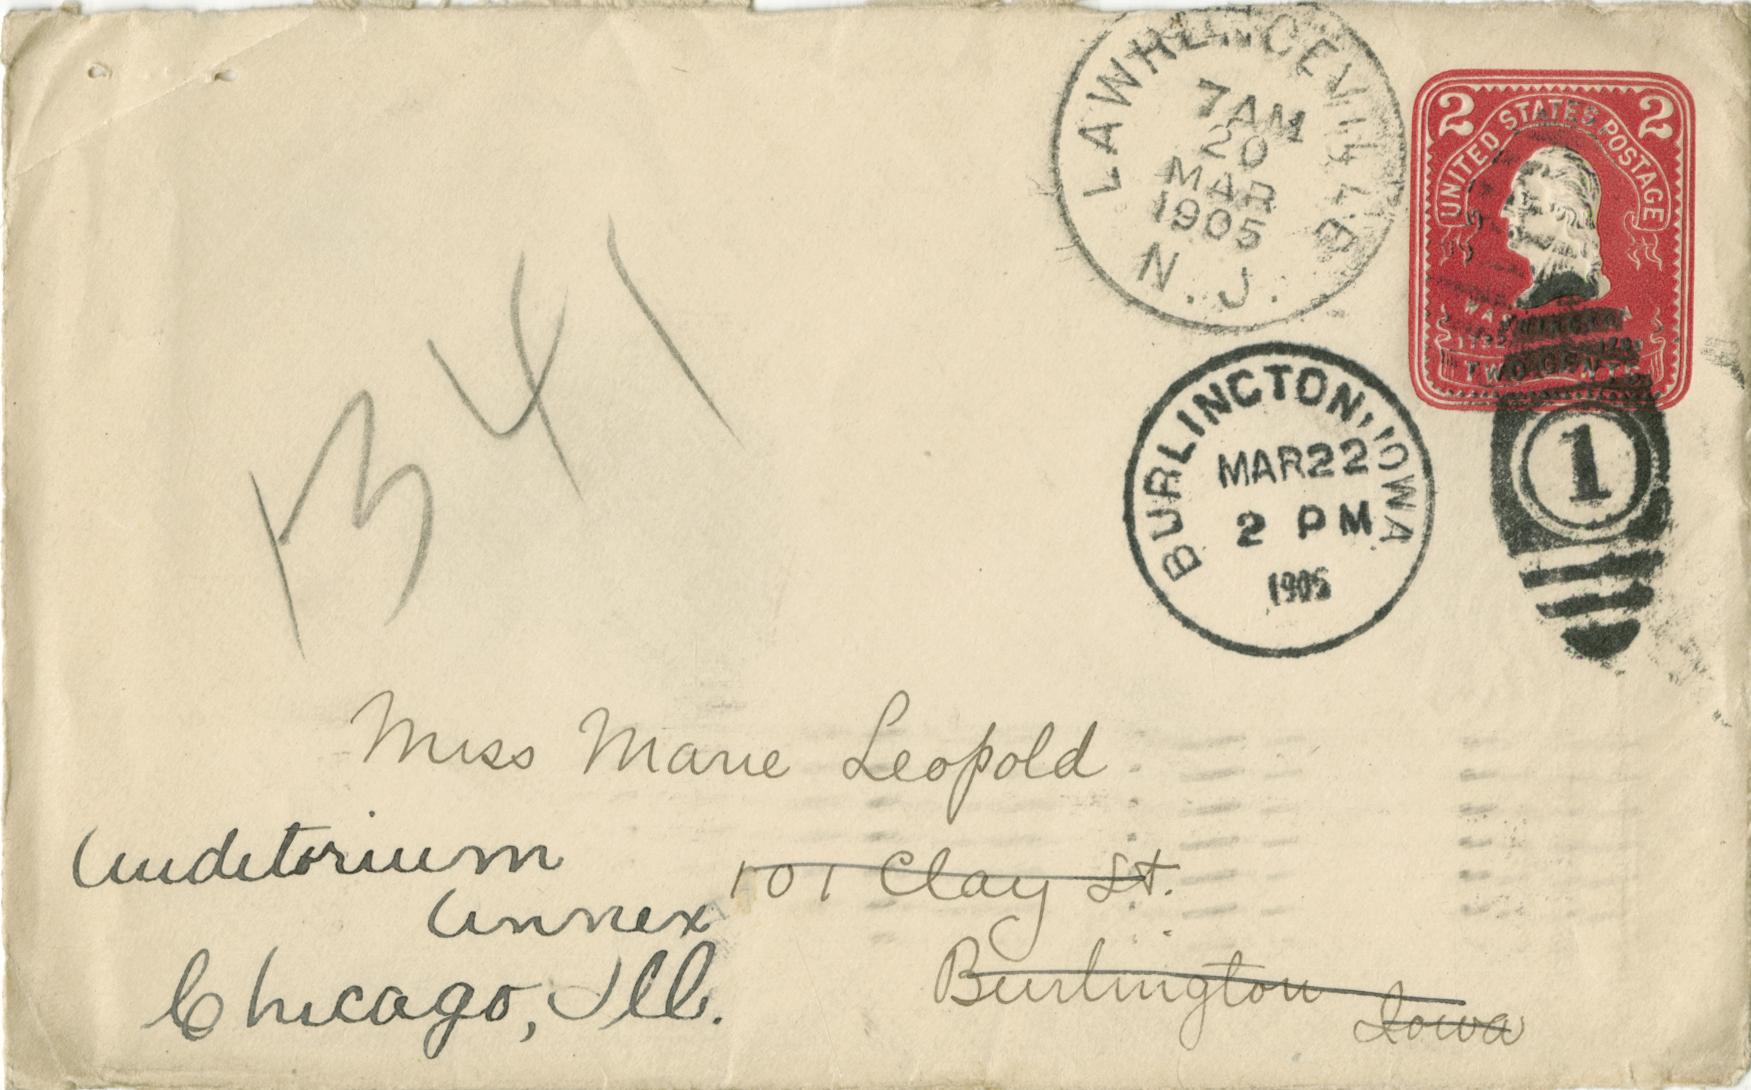 LAWRENCEVILLE
7 AM
20
MAR
1905
N. J.
2 2
UNITED STATES POSTAGE
WASHINGTON
TWO CENTS
BURLINGTON, IOWA
MAR 22
2 PM
1905
1
1341
Miss Marie Leopold
101 Clay St.
Burlington
Iowa
Auditorium
Annex
Chicago, Ill.